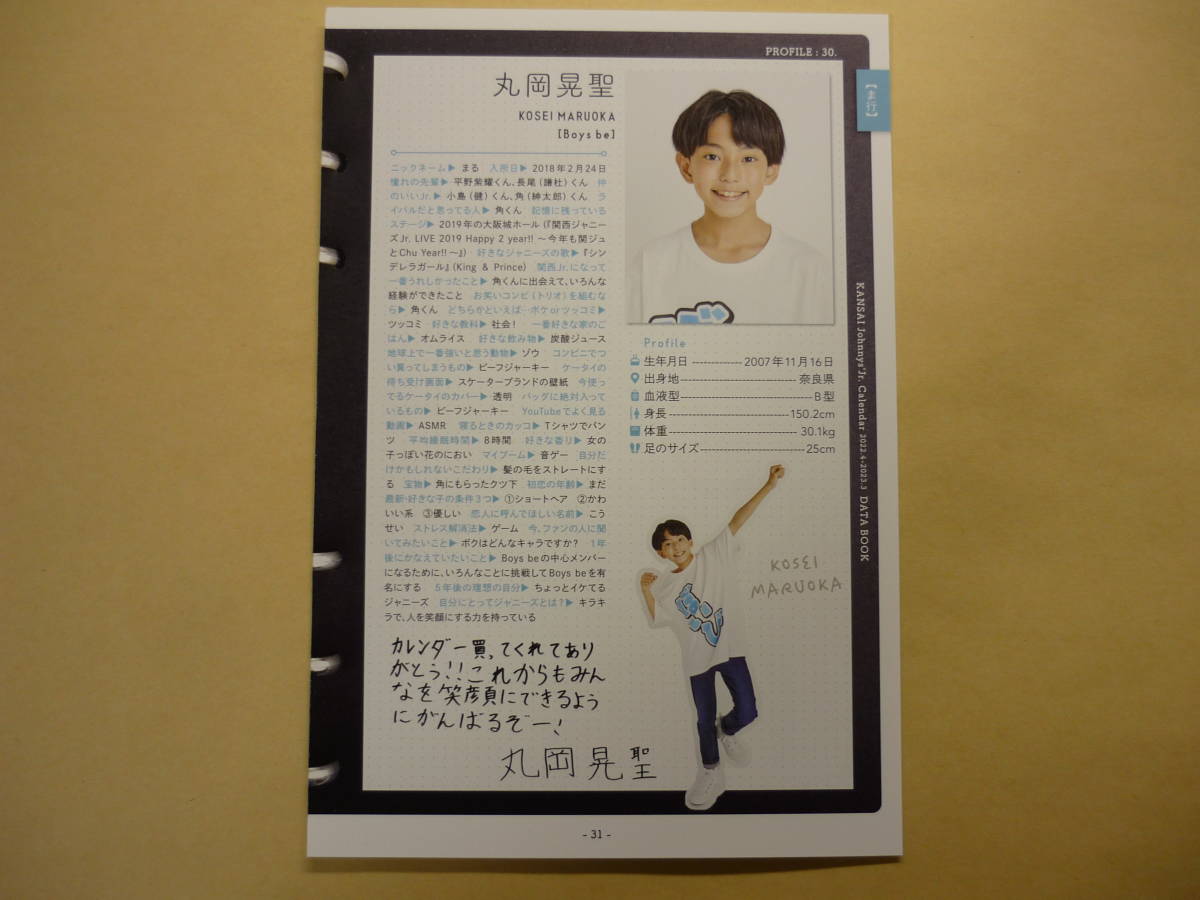 PROFILE : 30.
【ま行】
丸岡晃聖
KOSEI MARUOKA
[Boys be]
ニックネーム▶ まる 入所日▶ 2018年2月24日
憧れの先輩▶ 平野紫耀くん、長尾（謙杜）くん 仲
のいいJr.▶ 小島（健）くん、角（紳太郎）くん ラ
イバルだと思ってる人▶ 角くん 記憶に残っている
ステージ▶ 2019年の大阪城ホール（『関西ジャニー
ズJr. LIVE 2019 Happy 2 year!! 〜今年も関ジュ
とChu Year!!〜』） 好きなジャニーズの歌▶『シン
デレラガール』（King & Prince） 関西Jr.になって
一番うれしかったこと▶ 角くんに出会えて、いろんな
経験ができたこと お笑いコンビ（トリオ）を組むな
ら▶ 角くん どちらかといえば…ボケorツッコミ▶
ツッコミ 好きな教科▶ 社会！ 一番好きな家のご
はん▶ オムライス 好きな飲み物▶ 炭酸ジュース
地球上で一番強いと思う動物▶ ゾウ コンビニでつ
い買ってしまうもの▶ ビーフジャーキー ケータイの
待ち受け画面▶ スケーターブランドの壁紙 今使っ
てるケータイのカバー▶ 透明 バッグに絶対入って
いるもの▶ ビーフジャーキー YouTubeでよく見る
動画▶ ASMR 寝るときのカッコ▶ Tシャツでパン
ツ 平均睡眠時間▶ 8時間 好きな香り▶ 女の
子っぽい花のにおい マイブーム▶ 音ゲー 自分だ
けかもしれないこだわり▶ 髪の毛をストレートにす
る 宝物▶ 角にもらったクツ下 初恋の年齢▶ まだ
最新・好きな子の条件3つ▶ ①ショートヘア ②かわ
いい系 ③優しい 恋人に呼んでほしい名前▶ こう
せい ストレス解消法▶ ゲーム 今、ファンの人に聞
いてみたいこと▶ ボクはどんなキャラですか？ 1年
後にかなえていたいこと▶ Boys beの中心メンバー
になるために、いろんなことに挑戦してBoys beを有
名にする 5年後の理想の自分▶ ちょっとイケてる
ジャニーズ 自分にとってジャニーズとは？▶ キラキ
ラで、人を笑顔にする力を持っている
カレンダー買ってくれてあり
がとう!!これからもみん
なを笑顔にできるよう
にがんばるぞー!
丸岡晃聖
Profile
生年月日 ------------- 2007年11月16日
出身地 ------------------------------ 奈良県
血液型 ---------------------------------- B型
身長 ------------------------------- 150.2cm
体重 --------------------------------- 30.1kg
足のサイズ --------------------------- 25cm
KOSEI
MARUOKA
KANSAI Johnnys'Jr. Calendar 2022.4-2023.3 DATA BOOK
- 31 -